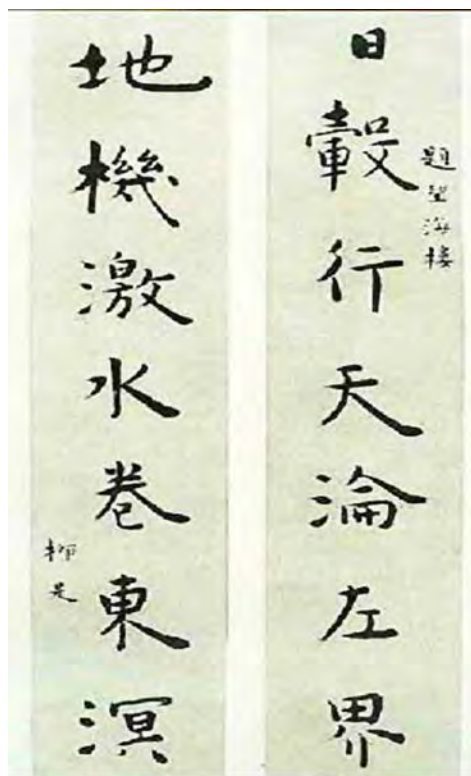 日轂行天淪左界
題望海樓
地機激水卷東溟
柳是